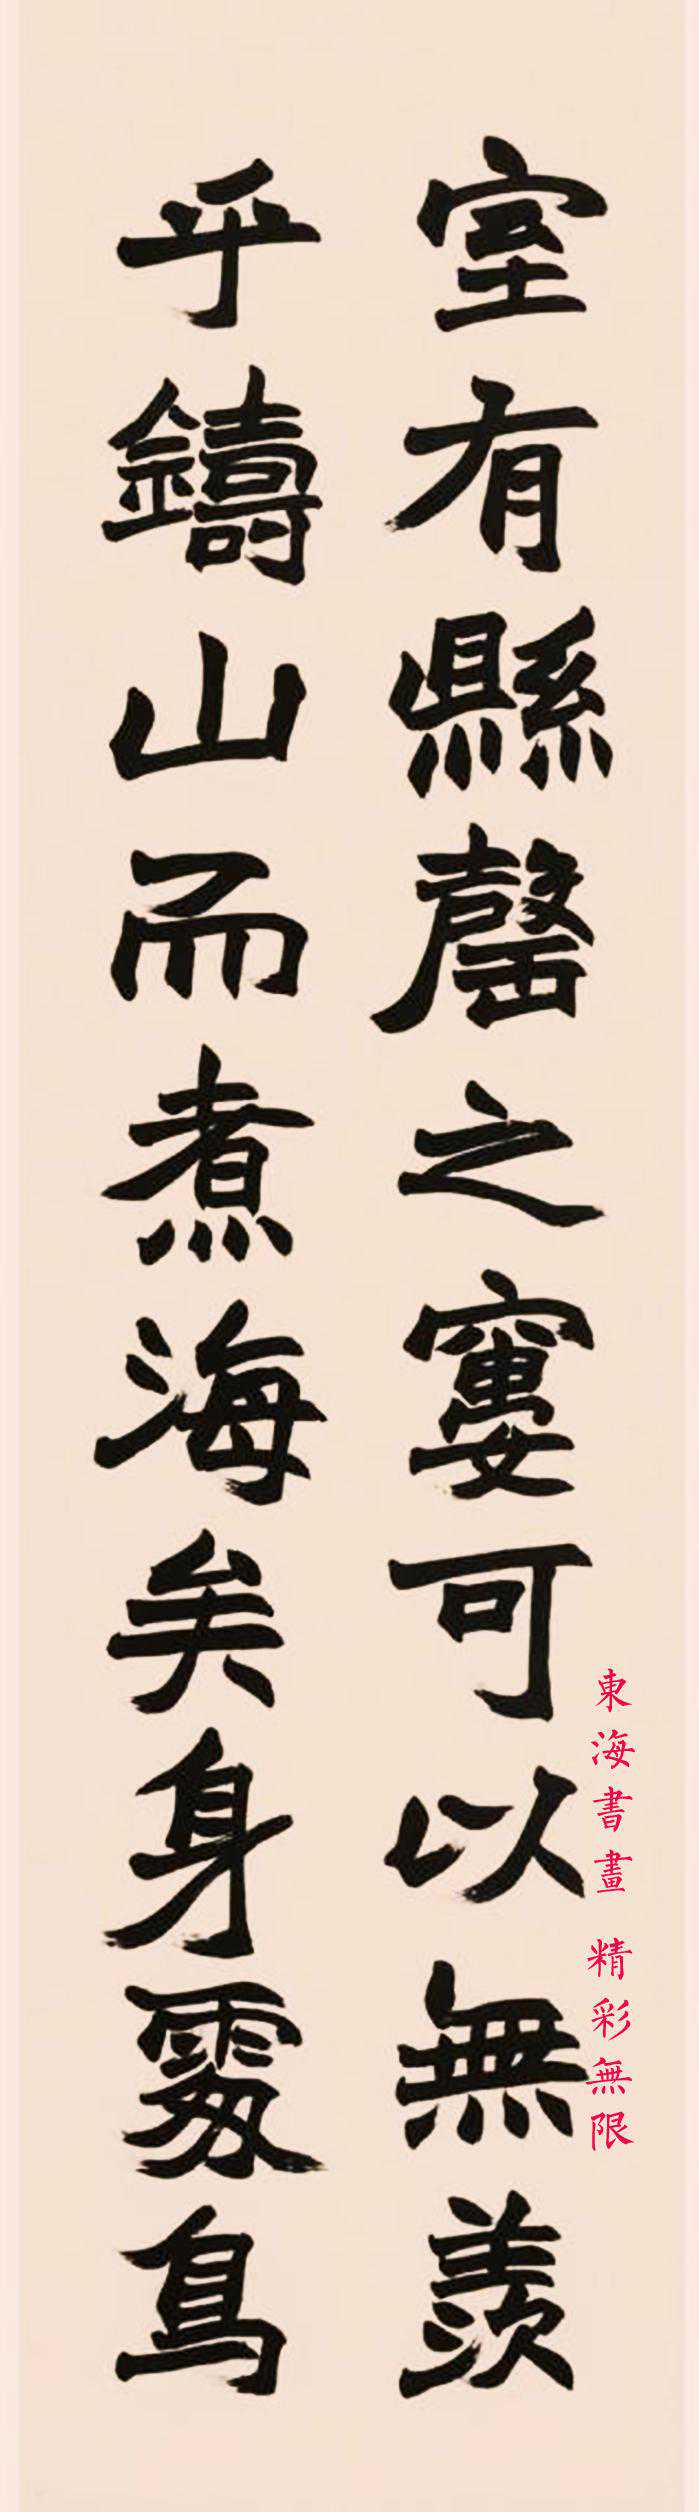 室有縣罄之窶可以無羨
乎鑄山而煮海矣身處島
東海書畫 精彩無限